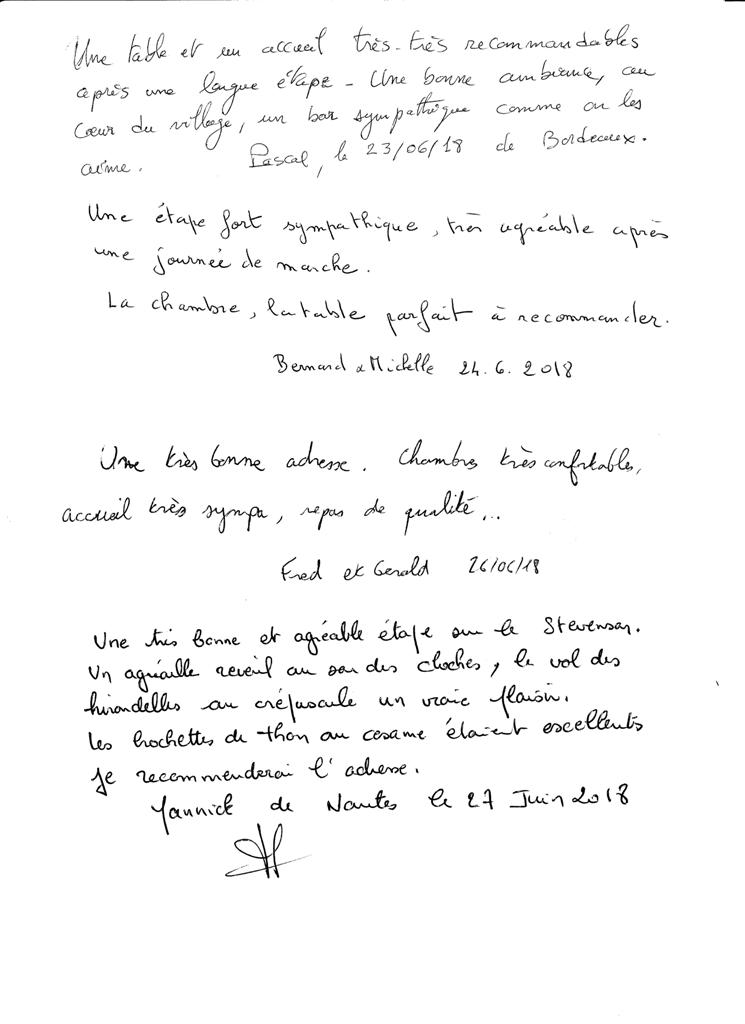 Une table et un accueil très-très recommandables
après une longue étape - Une bonne ambiance, au
Cœur du village, un bar sympathique comme on les
aime. Pascal, le 23/06/18 de Bordeaux.
Une étape fort sympathique, très agréable après
une journée de marche.
La chambre, la table parfait à recommander.
Bernard & Michelle 24.6.2018
Une très bonne adresse. Chambres très confortables,
accueil très sympa, repas de qualité...
Fred et Gerald 26/06/18
Une très bonne et agréable étape sur le Stevenson.
Un agréable reveil au son des cloches, le vol des
hirondelles au crépuscule un vraie plaisir.
Les brochettes de thon au cesame étaient excellents
je recommenderai l'adresse.
Yannick de Nantes le 27 Juin 2018